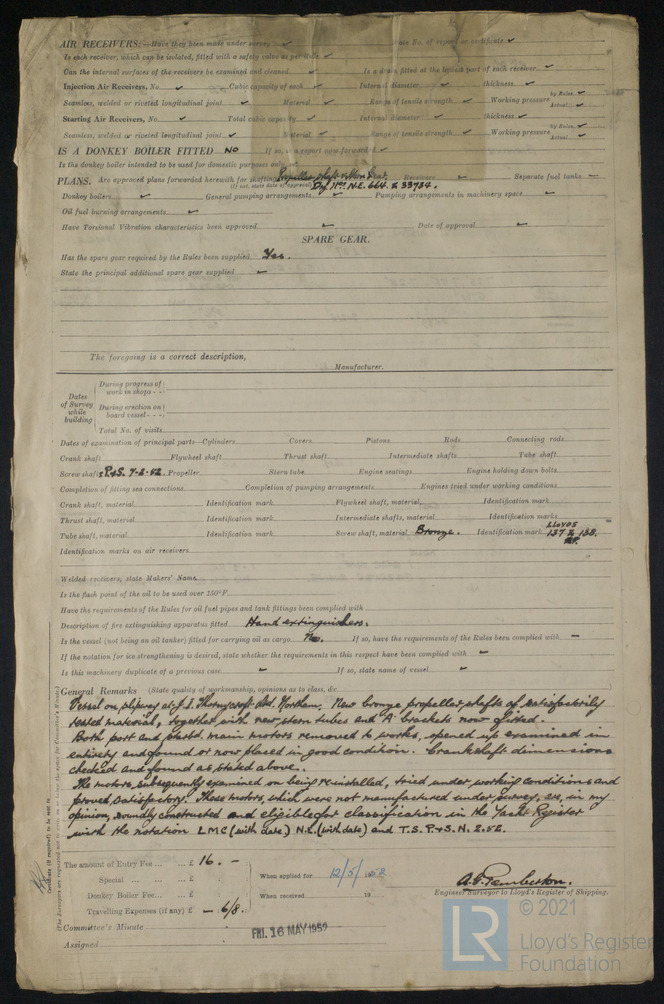 AIR RECEIVERS:—Have they been made under survey ✓ State No. of report or certificate ✓
Is each receiver, which can be isolated, fitted with a safety valve as per Rule ✓
Can the internal surfaces of the receivers be examined and cleaned ✓ Is a drain fitted at the lowest part of each receiver ✓
Injection Air Receivers, No. ✓ Cubic capacity of each ✓ Internal diameter ✓ thickness ✓
Seamless, welded or riveted longitudinal joint ✓ Material ✓ Range of tensile strength ✓ Working pressure by Rules ✓ Actual ✓
Starting Air Receivers, No. ✓ Total cubic capacity ✓ Internal diameter ✓ thickness ✓
Seamless, welded or riveted longitudinal joint ✓ Material ✓ Range of tensile strength ✓ Working pressure by Rules ✓ Actual ✓
IS A DONKEY BOILER FITTED NO If so, is a report now forwarded ✓
Is the donkey boiler intended to be used for domestic purposes only ✓
PLANS. Are approved plans forwarded herewith for shafting Propeller shaft Receivers ✓ Separate fuel tanks ✓
(If not, state date of approval) N.E. 664. & 33734.
Donkey boilers ✓ General pumping arrangements ✓ Pumping arrangements in machinery space ✓
Oil fuel burning arrangements ✓
Have Torsional Vibration characteristics been approved ✓ Date of approval ✓
SPARE GEAR.
Has the spare gear required by the Rules been supplied Yes.
State the principal additional spare gear supplied ✓
The foregoing is a correct description,
Manufacturer.
Dates of Survey while building
During progress of work in shops - -
During erection on board vessel - - -
Total No. of visits
Dates of examination of principal parts—Cylinders Covers Pistons Rods Connecting rods
Crank shaft Flywheel shaft Thrust shaft Intermediate shafts Tube shaft
Screw shafts P&S. 7-2-52. Propeller Stern tube Engine seatings Engine holding down bolts
Completion of fitting sea connections Completion of pumping arrangements Engines tried under working conditions
Crank shaft, material Identification mark Flywheel shaft, material Identification mark
Thrust shaft, material Identification mark Intermediate shafts, material Identification marks
Tube shaft, material Identification mark Screw shaft, material Bronze. Identification mark LLOYDS 137 & 138.
Identification marks on air receivers
Welded receivers, state Makers' Name
Is the flash point of the oil to be used over 150°F.
Have the requirements of the Rules for oil fuel pipes and tank fittings been complied with
Description of fire extinguishing apparatus fitted Hand extinguishers.
Is the vessel (not being an oil tanker) fitted for carrying oil as cargo No. If so, have the requirements of the Rules been complied with –
If the notation for ice strengthening is desired, state whether the requirements in this respect have been complied with ✓
Is this machinery duplicate of a previous case ✓ If so, state name of vessel ✓
General Remarks (State quality of workmanship, opinions as to class, &c.
Vessel on slipway at J. I. Thornycroft Ltd. Northam. New bronze propeller shafts of satisfactorily
tested material, together with new stern tubes and A brackets now fitted.
Both port and starbd. main motors removed to works, opened up examined in
entirety and found or now placed in good condition. Crankshaft dimensions
checked and found as stated above.
The motors subsequently examined on being reinstalled, tried under working conditions and
proved satisfactory. These motors, which were not manufactured under survey, are, in my
opinion, soundly constructed and eligible for classification in the Yacht Register
with the notation L.M.C (with date) N.E. (with date) and T.S. P.&S. N. 2.52.
Certificate (if required) to be sent to
The amount of Entry Fee ... £ 16. –
Special ... £
Donkey Boiler Fee... £
Travelling Expenses (if any) £ – 6/8.
When applied for 12/5/1952
When received 19
A. G. Pemberton.
Engineer Surveyor to Lloyd's Register of Shipping.
Committee's Minute FRI. 16 MAY 1952
Assigned
© 2021
LR
Lloyd's Register
Foundation